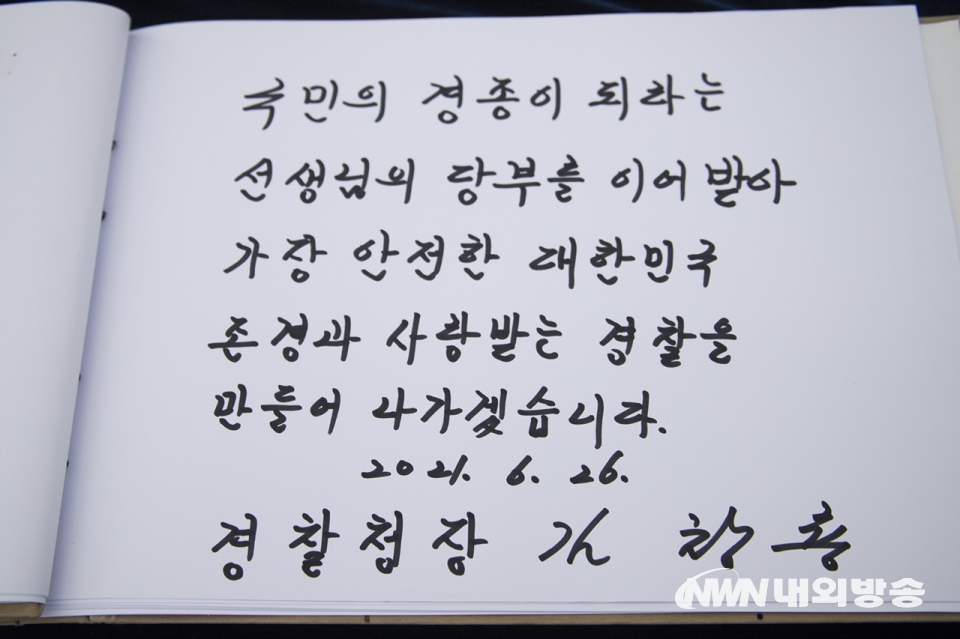 국민의 경종이 되라는
선생님의 당부를 이어 받아
가장 안전한 대한민국
존경과 사랑받는 경찰을
만들어 나가겠습니다.
2021. 6. 26.
경찰청장 김 창룡
NWN내외방송